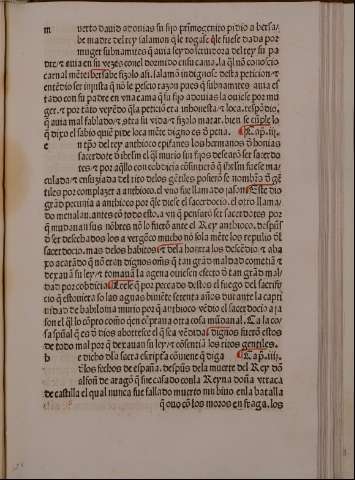 m uerto dauid adonias su fijo primogenito pidio a bersa/
be madre del rey salamon q̃ le rogase q̃le fuese dada por
muger subnamites q̃ auia seydo seruidora del rey su pa
dre / τ auia en su vejez conel dormido en su cama, la q̃l nõ conoscio
carnal mẽte: bersabe fizolo asi. salamõ indignose desta peticion / τ
entẽdio ser iniusta q̃ nõ le pescio razon pues q̃ subnamites auia es
tado con su padre en vna cama q̃ su fijo adonias la ouiese por mu
ger. τ por tãto veyẽdo q̃la petició era inhonesta / τ loca. respõdio.
q̃ auia mal fablado / τ cõtra su vida / τ fizolo matar. bien se cũple lo
q̃ dixo el sabio quiẽ pide loca mẽte digno es d̃ pena. Cap. iij.
e n tp̃o del rey anthioco epifanes los hermanos d̃ honias
sacerdote d̃ ihrlm el q̃l murio sin fijos desearõ ser sacerdo
tes / τ por aq̃llo con cobdicia cõsintierõ q̃ ihrlm fuese ma/
culada / τ ensuziada del rito delos gẽtiles posierõ se nonbre d̃ gẽ
tiles por complazer a anthioco. el vno fue llamado jason Este dio
grãd pecunia a anthioco por q̃le diese el sacerdocio. el otro llama/
do menalau. antes cõ todo esto. a vn q̃ pensarõ ser sacerdotes por
q̃ mudauan sus nõbres nõ lo fuerõ ante el Rey anthioco. despues
d̃ ser desechados los a vergõço mucho nõ sola mẽte los repulio d̃l
sacerdocio. mas delos habitos / τ dela honrra los desçẽdio. τ aba
xo acatãdo q̃ nõ eran dignos omẽs q̃ tan grãd maldad cometiã / τ
dexauã su ley / τ tomauã la agena ouiesen efecto d̃ tan grãd mal/
dad por cobdicia Leese q̃ por pecado desto el fuego del sacrifi/
cio q̃ estouiera so las aguas biuiẽte setenta años durante la capti
uidad de babilonia murio por q̃ anthioco vẽdio el sacerdocio a ja
son el q̃l lo cõpro como q̃en cõprara otra cosa mũdanal. Ca la co
sa spũal q̃ es d̃ dios aborresce el q̃ sea vẽdida dignos fuerõ estos
de todo mal por q̃ dexauan su ley / τ cõsentiã los ritos gentiles.
b e dicho dla sacra escriptra cõuiene q̃ diga Cap. iiij.
d̃los fechos de españa. despũs dela muerte del Rey dõ
alfon̄ de aragõ q̃ fue casado conla Reyna doña vrraca
de castilla el qual nunca fue fallado muerto ni biuo. enla batalla
q̃ ouo cõ los moros en fraga. los